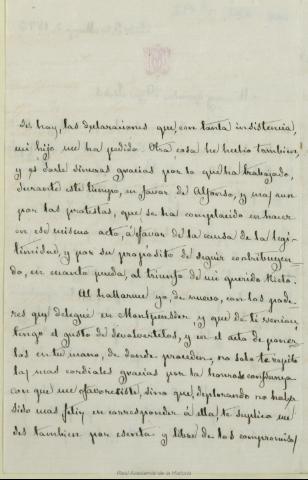 des hoy, las declaraciones que, con tanta insistencia,
mi hijo me ha pedido. Otra cosa he hecho tambien,
y es darle sinceras gracias por lo que ha trabajado,
durante este tiempo, en favor de Alfonso, y mas aun
por las protestas, que se ha complacido en hacer
en ese mismo acto, á favor de la causa de la legi-
timidad, y por su proposito de seguir contribuyen-
do, en cuanto pueda, al triunfo de mi querido Nieto.
Al hallarme yo, de nuevo, con los pode-
res que delegué en Montpensier, y que de ti venian
tengo el gusto de devolvertelos, y en el acto de poner-
los en tu mano, de donde proceden, no solo te repito
las mas cordiales gracias por la honrosa confianza
con que me favoreciste, sino que, deplorando no haber
sido mas feliz en corresponder á ella, te suplico me
des tambien por escrito y libre de los compromisos
Real Academia de la Historia